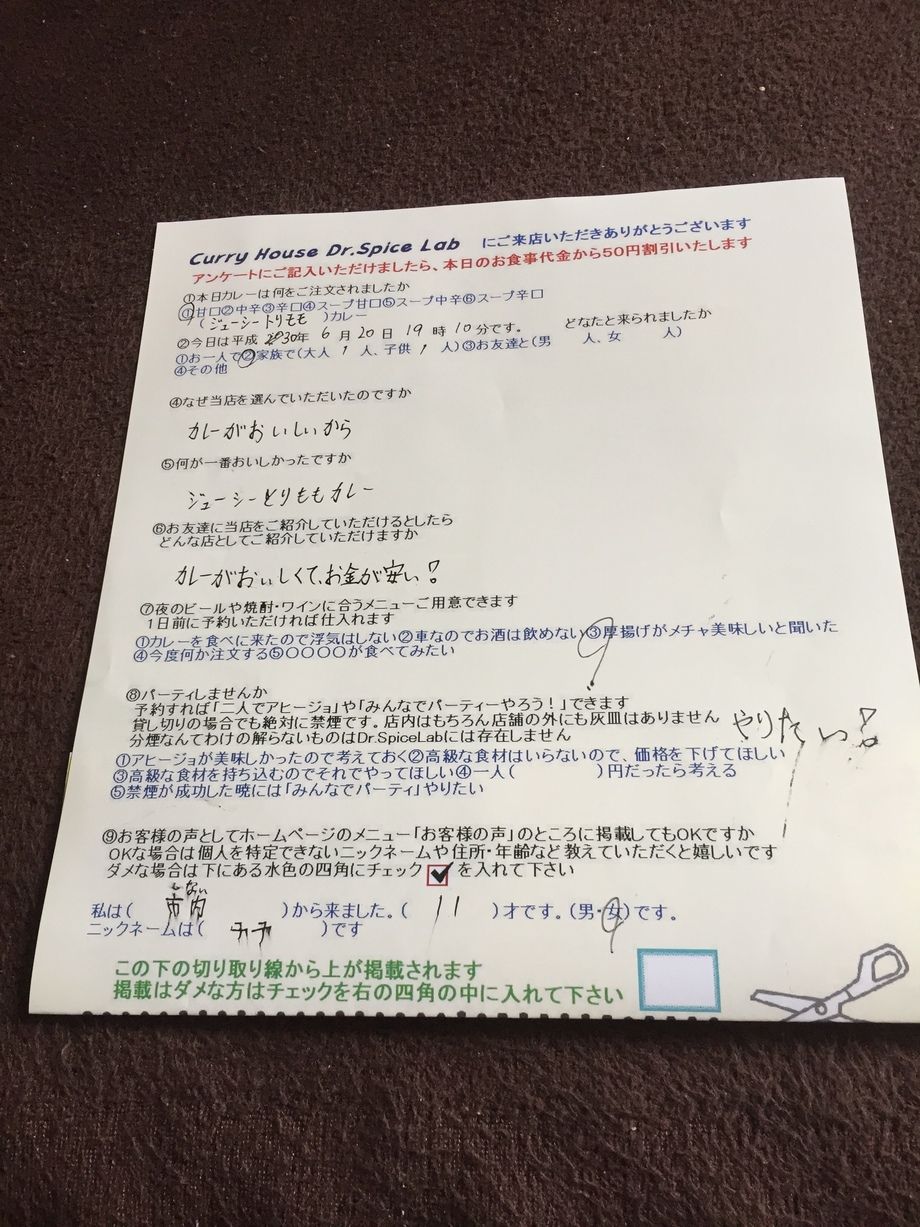 Curry House Dr.Spice Lab にご来店いただきありがとうございます
アンケートにご記入いただけましたら、本日のお食事代金から50円割引いたします
①本日カレーは何をご注文されましたか
①甘口②中辛③辛口④スープ甘口⑤スープ中辛⑥スープ辛口
(ジューシートリモモ)カレー
②今日は平成 30年 6月 20日 19時 10分です。 どなたと来られましたか
①お一人で②家族で(大人 1 人、子供 1 人)③お友達と(男 人、女 人)
④その他
④なぜ当店を選んでいただいたのですか
カレーがおいしいから
⑤何が一番おいしかったですか
ジューシーとりももカレー
⑥お友達に当店をご紹介していただけるとしたら
どんな店としてご紹介していただけますか
カレーがおいしくて、お金が安い!
⑦夜のビールや焼酎・ワインに合うメニューご用意できます
1日前に予約いただければ仕入れます
①カレーを食べに来たので浮気はしない②車なのでお酒は飲めない③厚揚げがメチャ美味しいと聞いた
④今度何か注文する⑤〇〇〇〇が食べてみたい
⑧パーティしませんか
予約すれば「二人でアヒージョ」や「みんなでパーティーやろう!」できます
貸し切りの場合でも絶対に禁煙です。店内はもちろん店舗の外にも灰皿はありません
やりたい!
分煙なんてわけの解らないものはDr.SpiceLabには存在しません
①アヒージョが美味しかったので考えておく②高級な食材はいらないので、価格を下げてほしい
③高級な食材を持ち込むのでそれでやってほしい④一人( )円だったら考える
⑤禁煙が成功した暁には「みんなでパーティ」やりたい
⑨お客様の声としてホームページのメニュー「お客様の声」のところに掲載してもOKですか
OKな場合は個人を特定できないニックネームや住所・年齢など教えていただくと嬉しいです
ダメな場合は下にある水色の四角にチェック✔を入れて下さい
しない
私は( 市内 )から来ました。( 11 )才です。(男・女)です。
ニックネームは( )です
この下の切り取り線から上が掲載されます
掲載はダメな方はチェックを右の四角の中に入れて下さい